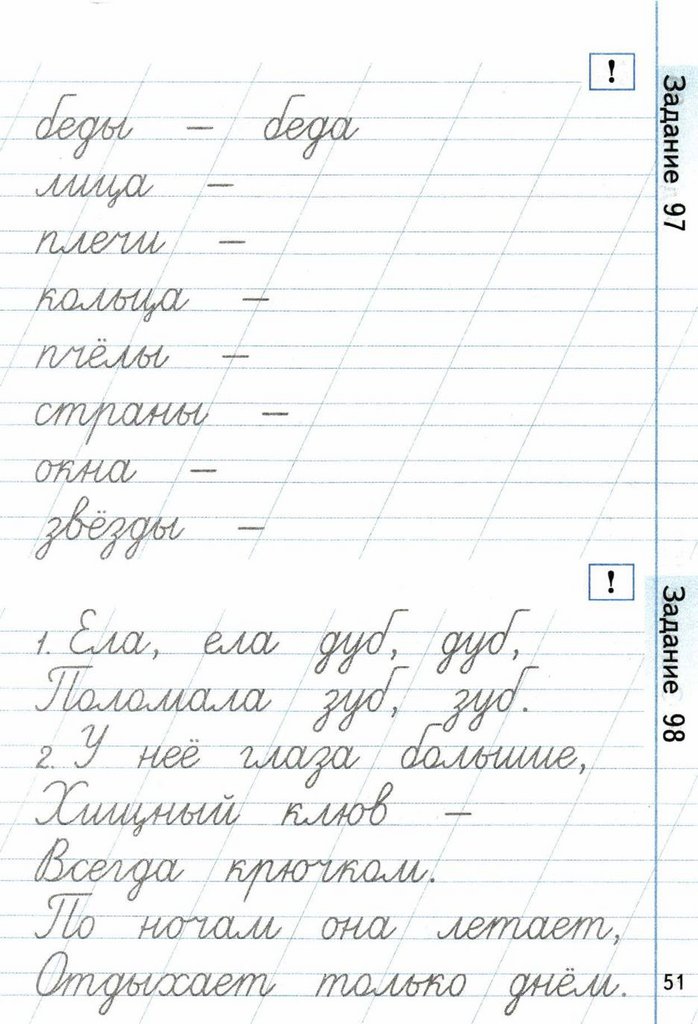 !
Задание 97
беды – беда
лица –
плечи –
кольца –
пчёлы –
страны –
окна –
звёзды –
!
Задание 98
1. Ела, ела дуб, дуб,
Поломала зуб, зуб.
2. У неё глаза большие,
Хищный клюв –
Всегда крючком.
По ночам она летает,
Отдыхает только днём.
51